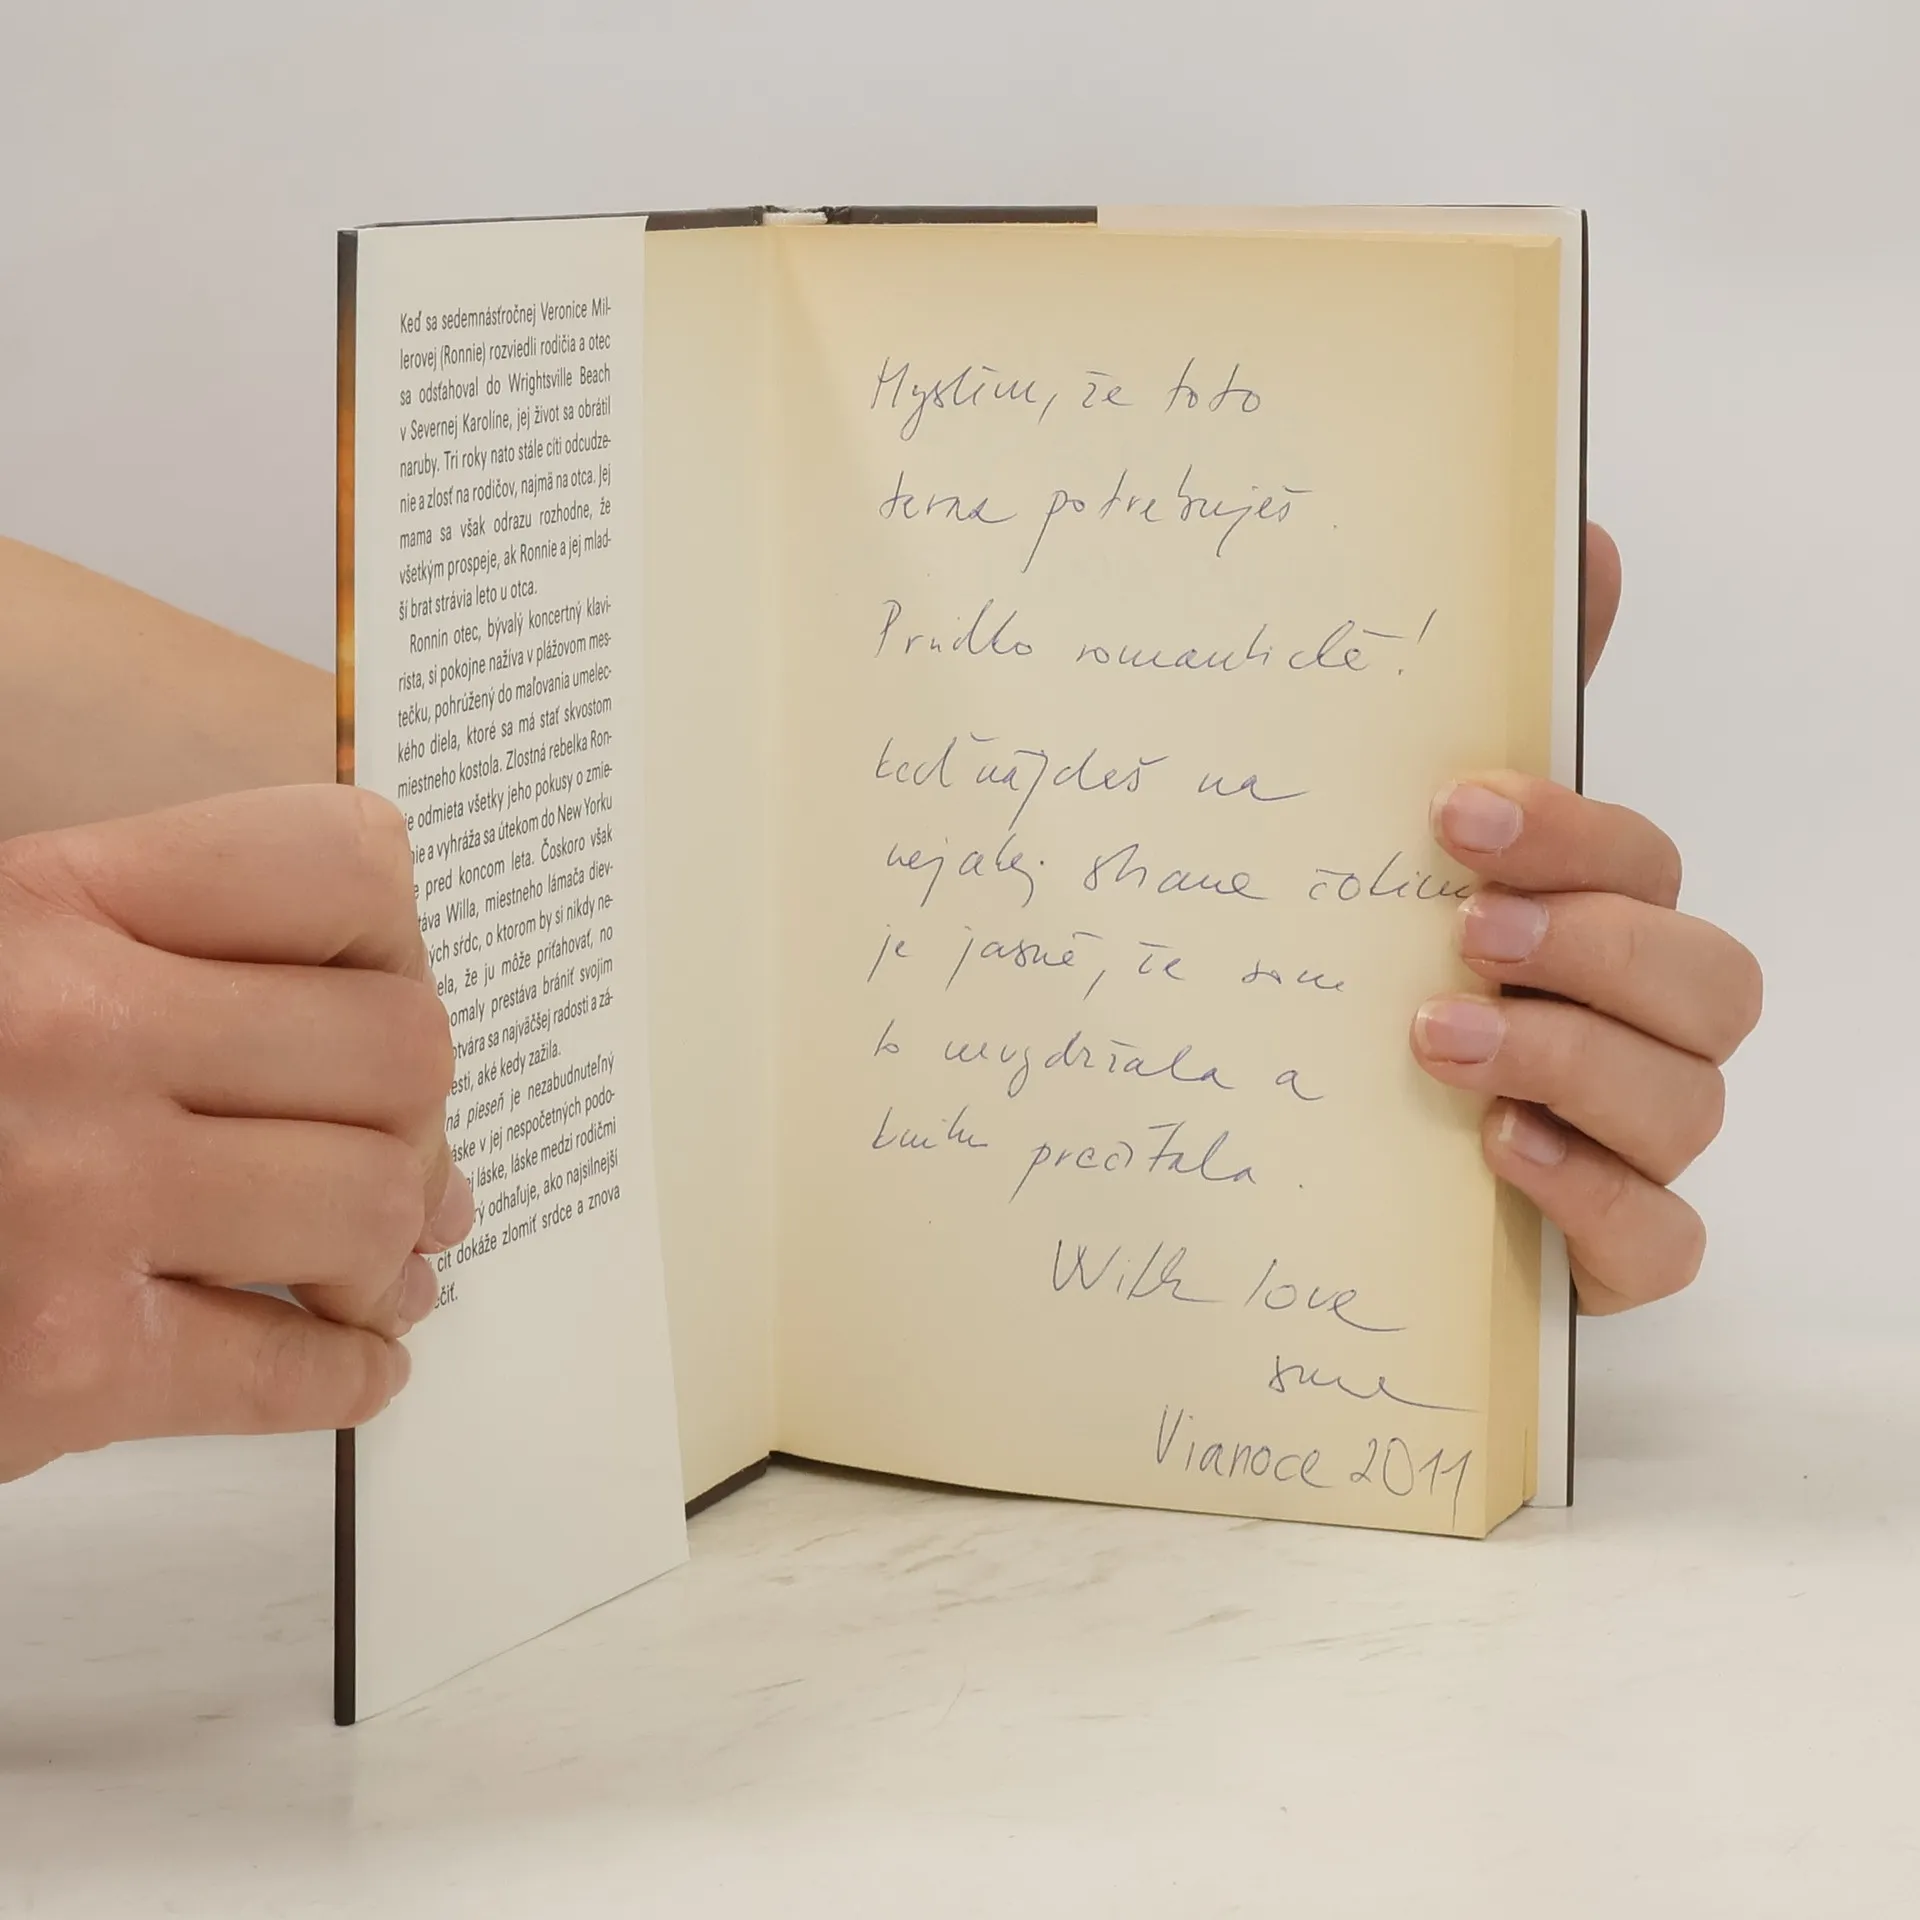 Keď sa sedemnásťročnej Veronice Mil-
lerovej (Ronnie) rozviedli rodičia a otec
sa odsťahoval do Wrightsville Beach
v Severnej Karolíne, jej život sa obrátil
naruby. Tri roky nato stále cíti odcudze-
nie a zlosť na rodičov, najmä na otca. Jej
mama sa však odrazu rozhodne, že
všetkým prospeje, ak Ronnie a jej mlad-
ší brat strávia leto u otca.
Ronnin otec, bývalý koncertný klavi-
rista, si pokojne nažíva v plážovom mes-
tečku, pohrúžený do maľovania umelec-
kého diela, ktoré sa má stať skvostom
miestneho kostola. Zlostná rebelka Ron-
ie odmieta všetky jeho pokusy o zmie-
nie a vyhráža sa útekom do New Yorku
e pred koncom leta. Čoskoro však
táva Willa, miestneho lámača diev-
ých sŕdc, o ktorom by si nikdy ne-
ela, že ju môže priťahovať, no
omaly prestáva brániť svojim
otvára sa najväčšej radosti a zá-
esti, aké kedy zažila.
ná pieseň je nezabudnuteľný
áske v jej nespočetných podo-
ej láske, láske medzi rodičmi
rý odhaľuje, ako najsilnejší
cit dokáže zlomiť srdce a znova
ečiť.
Myslím, že toto
teraz potrebuješ.
Prudko romantické!
keď nájdeš na
nejakej strane čokoládu
je jasné, že som
to nevydržala a
knihu prečítala.
With love
Vianoce 2011